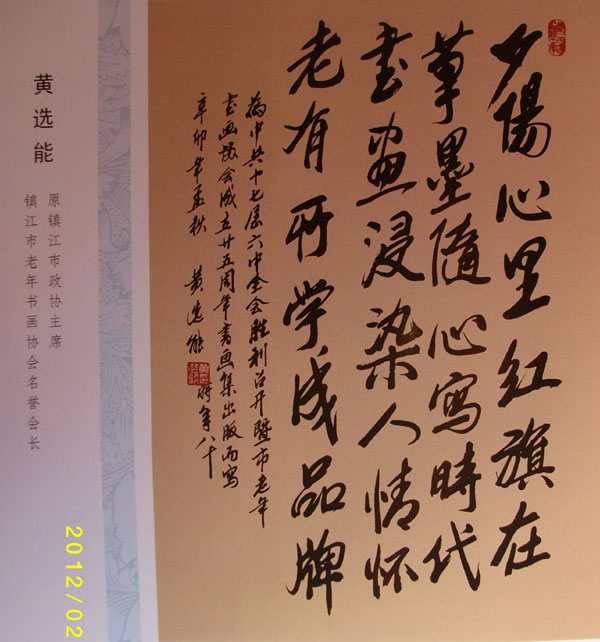 夕陽心里红旗在
筆墨隨心寫時代
书画浸染人情怀
老有所学成品牌
为中共十七届六中全会胜利召开暨市老年
书画协会成立廿五周年书画集出版而写
辛卯年孟秋 黄选能 时年八十
黄选能
原镇江市政协主席
镇江市老年书画协会名誉会长
2012/02